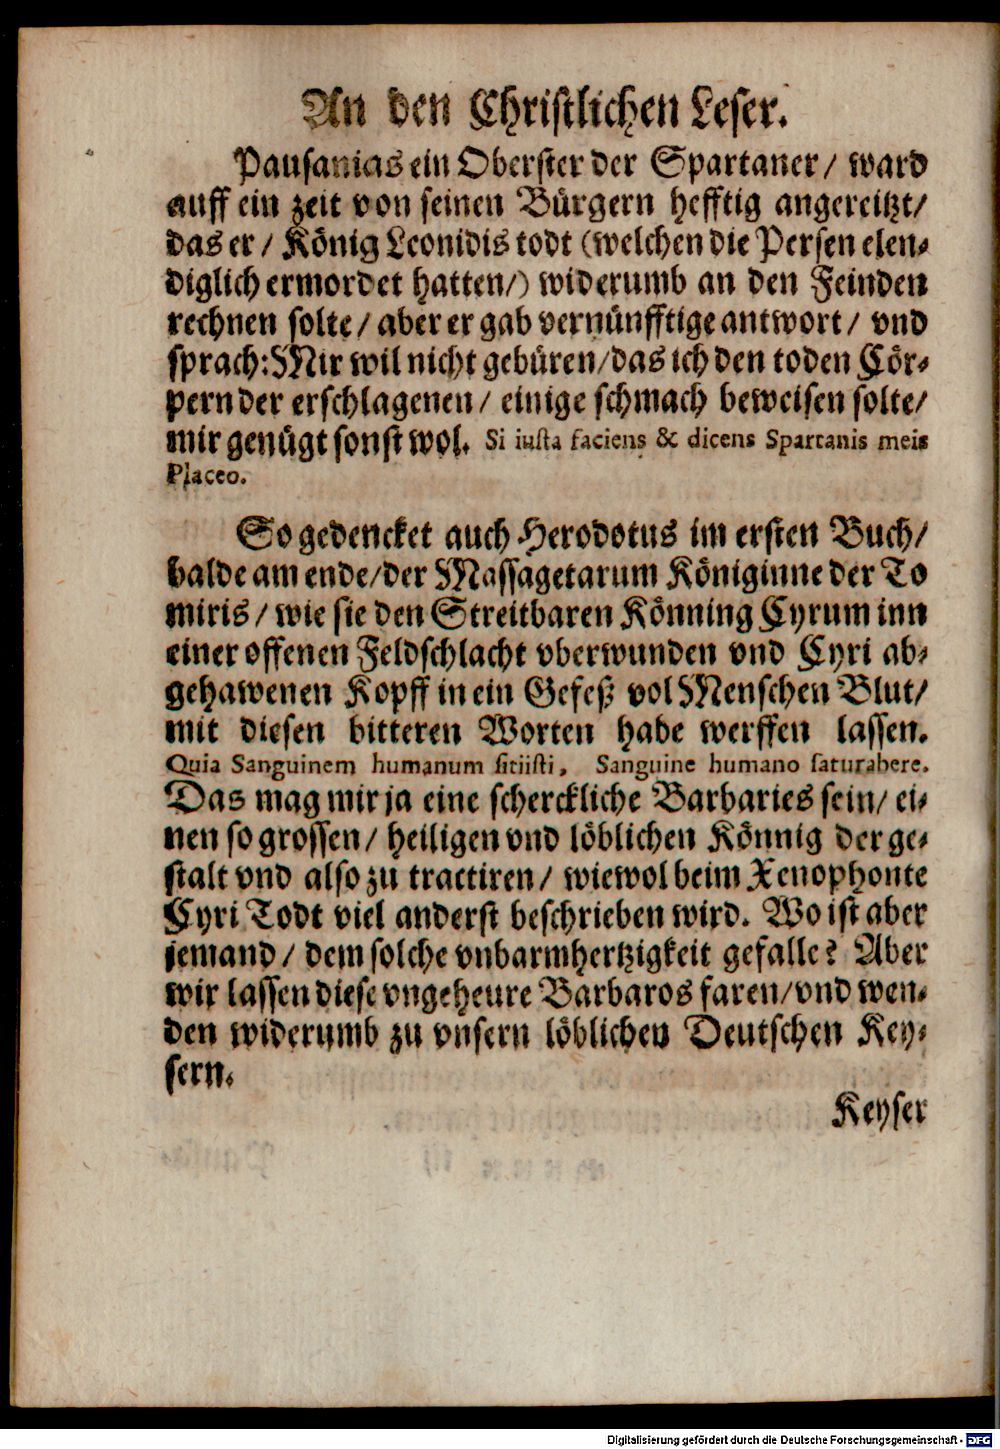 An den Christlichen Leser.
Pausanias ein Oberster der Spartaner/ ward
auff ein zeit von seinen Bürgern hefftig angereitzt/
das er/ König Leonidis todt (welchen die Persen elen-
diglich ermordet hatten/) widerumb an den Feinden
rechnen solte/ aber er gab vernünfftige antwort/ vnd
sprach: Mir wil nicht gebüren/ das ich den toden Cör-
pern der erschlagenen/ einige schmach beweisen solte/
mir genügt sonst wol. Si iusta faciens & dicens Spartanis meis
Placeo.
So gedencket auch Herodotus im ersten Buch/
balde am ende/ der Massagetarum Königinne der To
miris/ wie sie den Streitbaren Könning Cyrum inn
einer offenen Feldschlacht vberwunden vnd Cyri ab-
gehawenen Kopff in ein Gefeß vol Menschen Blut/
mit diesen bitteren Worten habe werffen lassen.
Quia Sanguinem humanum sitiisti, Sanguine humano saturabere.
Das mag mir ja eine scherckliche Barbaries sein/ ei-
nen so grossen/ heiligen vnd löblichen Könnig der ge-
stalt vnd also zu tractiren/ wiewol beim Xenophonte
Cyri Todt viel anderst beschrieben wird. Wo ist aber
jemand/ dem solche vnbarmhertzigkeit gefalle? Aber
wir lassen diese vngeheure Barbaros faren/ vnd wen-
den widerumb zu vnsern löblichen Deutschen Key-
sern.
Keyser
Digitalisierung gefördert durch die Deutsche Forschungsgemeinschaft - DFG